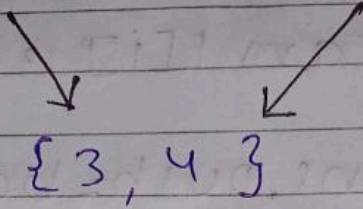 {3, 4}